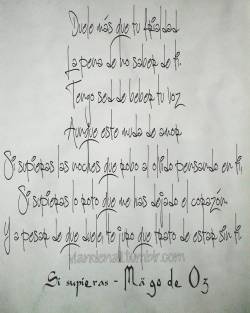 Duele más que tu frialdad
La pena de no saber de ti.
Tengo sed de beber tu voz
Aunque este muda de amor
Si supieras las noches que paso a oscuras pensando en ti,
Si supieras lo roto que me has dejado el corazón
Y a pesar de que duele te juro que trato de estar sin ti.
Si supieras - Mägo de Oz